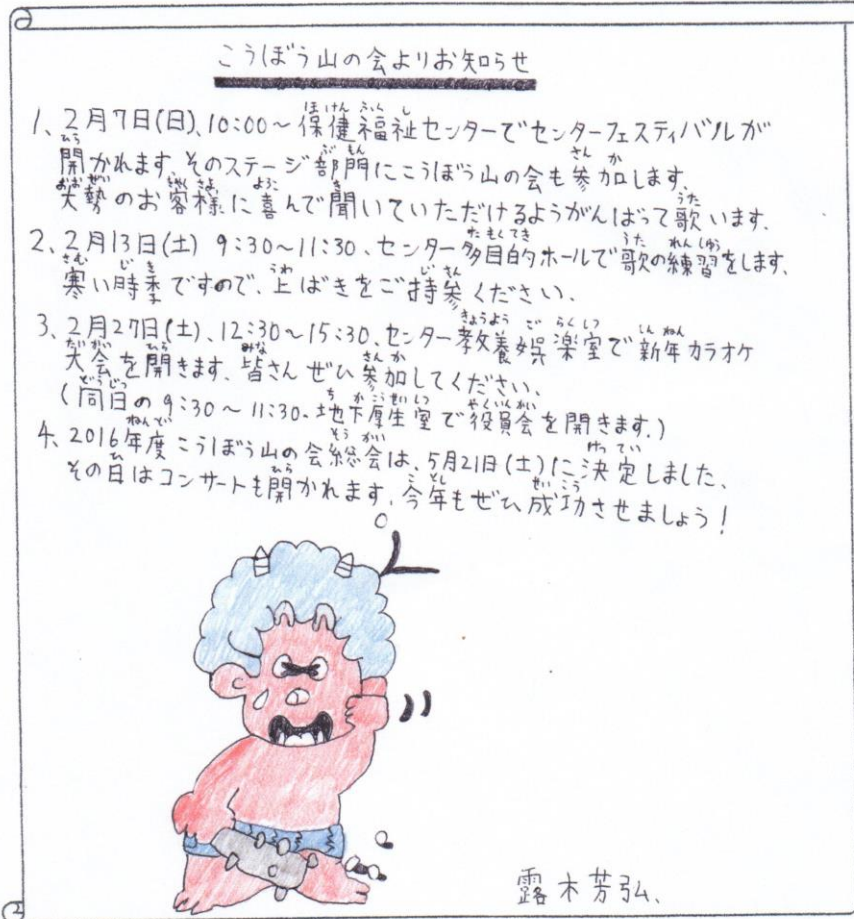 こうぼう山の会よりお知らせ
1、2月7日(日)、10:00～保健福祉センターでセンターフェスティバルが
開かれます。そのステージ部門にこうぼう山の会も参加します。
大勢のお客様に喜んで聞いていただけるようがんばって歌います。
2、2月13日(土) 9:30～11:30、センター多目的ホールで歌の練習をします。
寒い時季ですので、上ばきをご持参ください。
3、2月27日(土)、12:30～15:30、センター教養娯楽室で新年カラオケ
大会を開きます。皆さんぜひ参加してください。
(同日の9:30～11:30、地下厚生室で役員会を開きます。)
4、2016年度こうぼう山の会総会は、5月21日(土)に決定しました。
その日はコンサートも開かれます。今年もぜひ成功させましょう!
露木芳弘、